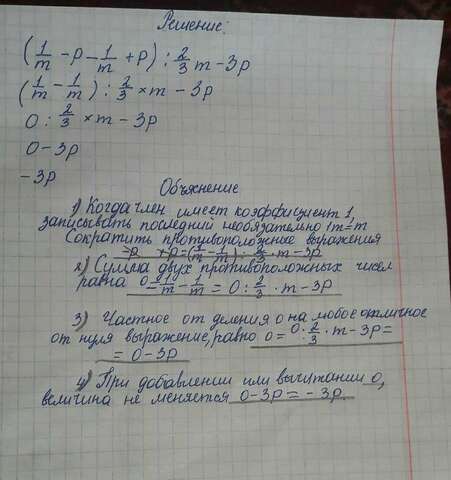 Решение:
(1/m - p - 1/m + p) : 2/3 m - 3p
(1/m - 1/m) : 2/3 × m - 3p
0 : 2/3 × m - 3p
0 - 3p
- 3p
Объяснение
1) Когда член имеет коэффициент 1,
записывать последний необязательно 1m=m
Сократить противоположные выражения
-p +p = (1/m - 1/m) : 2/3 · m - 3p
2) Сумма двух противоположных чисел
равна 0 1/m - 1/m = 0 : 2/3 · m - 3p
3) Частное от деления 0 на любое отличное
от нуля выражение, равно 0 = 0 : 2/3 · m - 3p =
= 0 - 3p
4) При добавлении или вычитании 0,
величина не меняется 0 - 3p = - 3p.